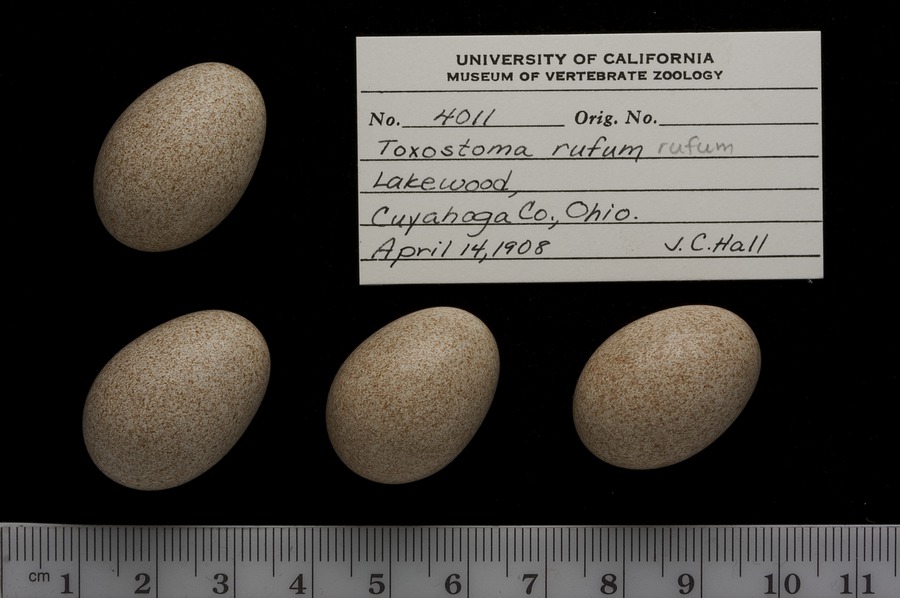 UNIVERSITY OF CALIFORNIA
MUSEUM OF VERTEBRATE ZOOLOGY
No. 4011 Orig. No.
Toxostoma rufum rufum
Lakewood,
Cuyahoga Co., Ohio.
April 14, 1908 J. C. Hall
cm 1 2 3 4 5 6 7 8 9 10 11